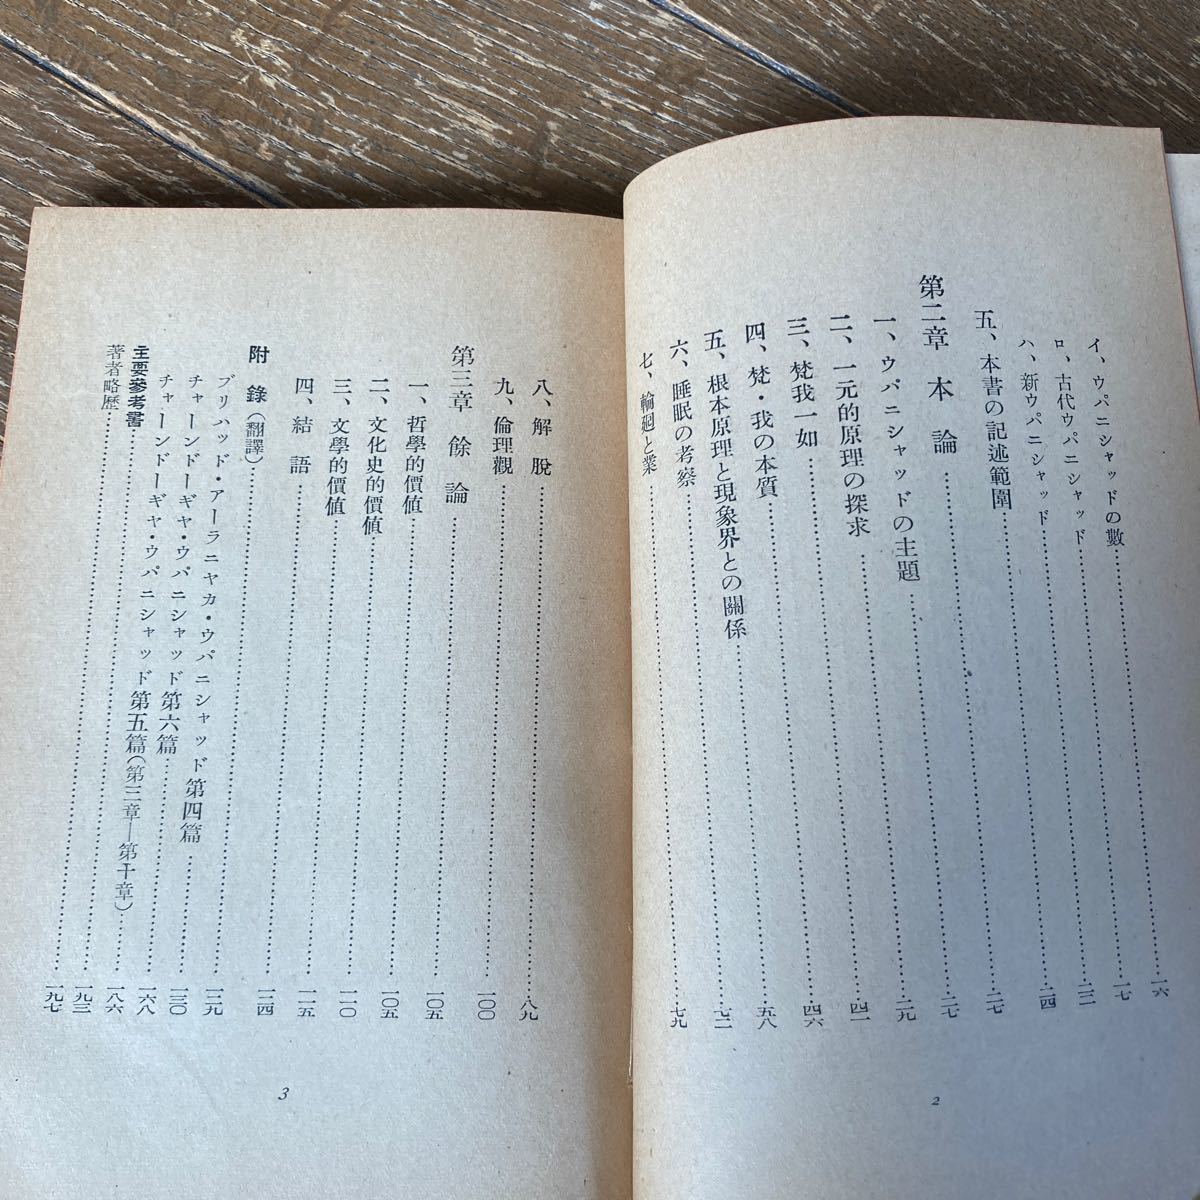 イ、ウパニシャッドの數……一六
ロ、古代ウパニシャッド……一七
ハ、新ウパニシャッド……二二
五、本書の記述範圍……二四
第二章 本論……二七
一、ウパニシャッドの主題……二七
二、一元的原理の探求……二九
三、梵我一如……四一
四、梵・我の本質……四六
五、根本原理と現象界との關係……五八
六、睡眠の考察……七二
七、輪廻と業……七九
2
八、解脫……八九
九、倫理觀……一〇〇
第三章 餘論……一〇五
一、哲學的價値……一〇五
二、文化史的價値……一一〇
三、文學的價値……一一五
四、結語……一二四
附錄(翻譯)……一二九
ブリハッド・アーラニヤカ・ウパニシャッド第四篇……一三〇
チャーンドーギヤ・ウパニシャッド第六篇……一六八
チャーンドーギヤ・ウパニシャッド第五篇(第三章―第十章)……一八六
主要參考書……一九三
著者略歷……一九七
3